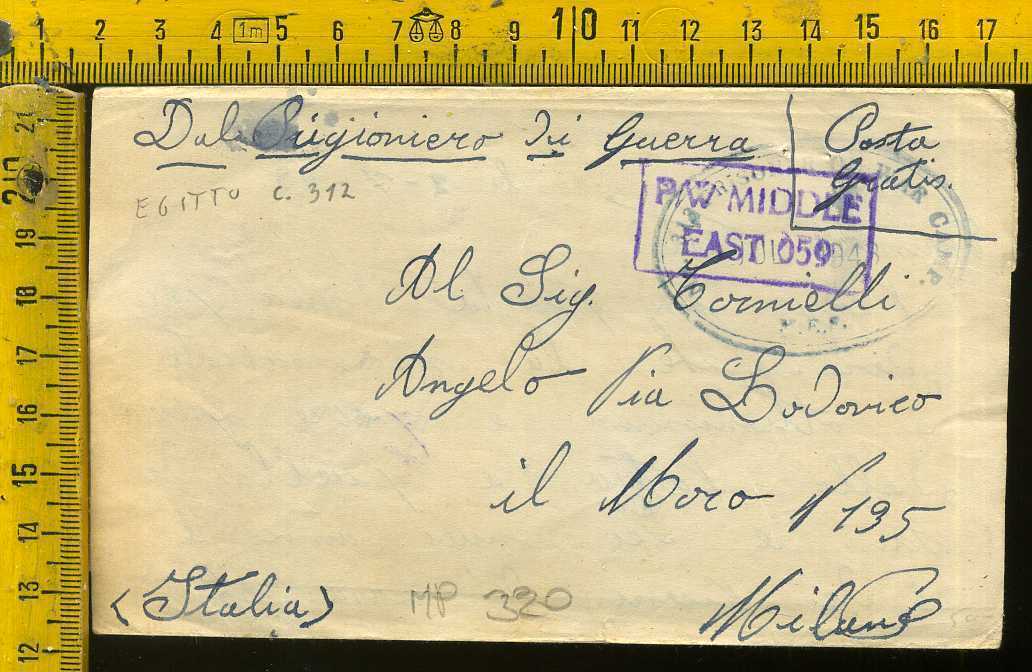 1 2 3 4 1m 5 6 7 8 9 10 11 12 13 14 15 16 17
21
20
19
18
17
16
15
14
13
12
Dal Prigioniero di Guerra
Posta
Gratis.
EGITTO C. 312
P/W MIDDLE
EAST 059
CAMP.
M.E.F.
Al Sig. Tornielli
Angelo Via Lodovico
il Moro N 195
Milano
(Italia)
MP 320